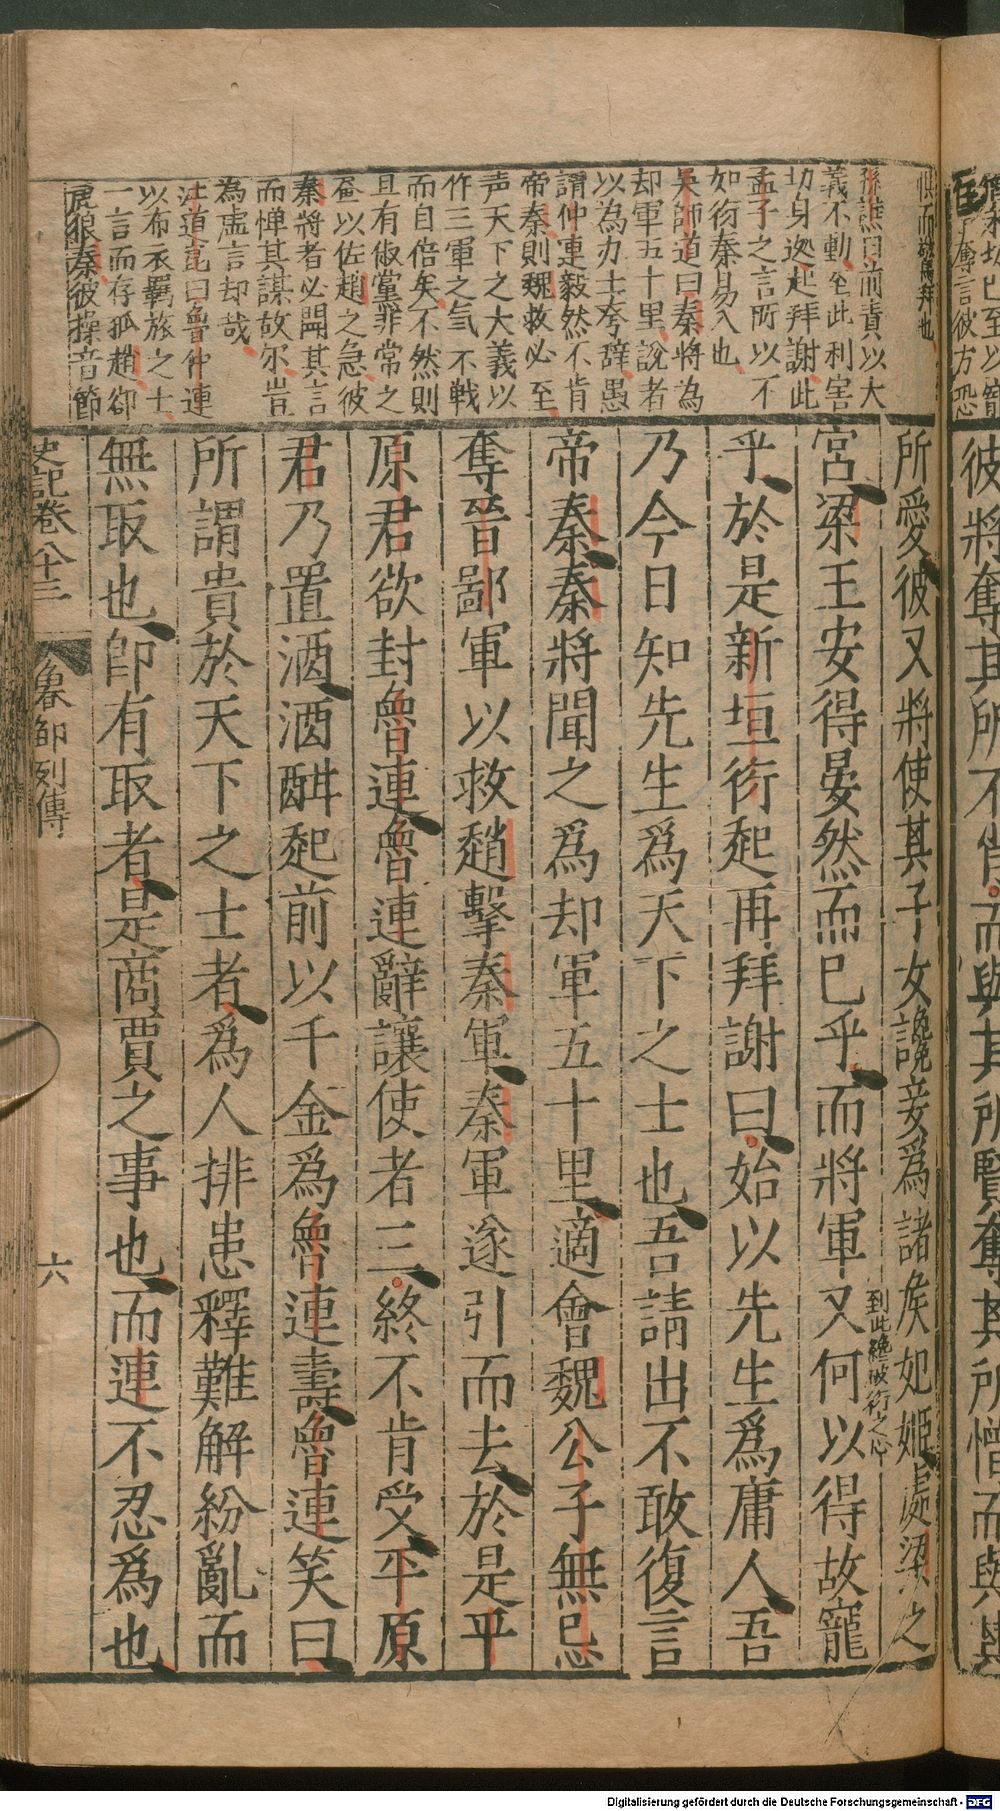 彼將奪其所不肖而與其所賢奪其所憎而與其
所愛彼又將使其子女讒妾爲諸矦妃姬處梁之
宮梁王安得晏然而已乎而將軍又何以得故寵
到此纔破衍之心
乎於是新垣衍起再拜謝曰始以先生爲庸人吾
乃今日知先生爲天下之士也吾請出不敢復言
帝秦秦將聞之爲却軍五十里適會魏公子無忌
奪晉鄙軍以救趙擊秦軍秦軍遂引而去於是平
原君欲封魯連魯連辭讓使者三終不肯受平原
君乃置酒酒酣起前以千金爲魯連壽魯連笑曰
所謂貴於天下之士者爲人排患釋難解紛亂而
無取也卽有取者是商賈之事也而連不忍爲也
奪言彼方恐
懼而
拜也
孫鑛曰前責以大
義不動至此利害
切身遂起拜謝此
孟子之言所以不
如衍秦易入也
吳師道曰秦將為
却軍五十里說者
以為办士夸辭愚
謂仲連毅然不肯
帝秦則魏救必至
声天下之大義以
作三軍之氣不戦
而自倍矣不然則
且有俶黨非常之
畫以佐趙之急彼
秦將者必聞其言
而憚其謀故尔豈
為虛言却哉
汪道昆曰魯仲連
以布衣羇旅之士
一言而存孤趙卻
虎狼秦彼操音節
史記卷八十三
魯鄒列傳
六
Digitalisierung gefördert durch die Deutsche Forschungsgemeinschaft - DFG